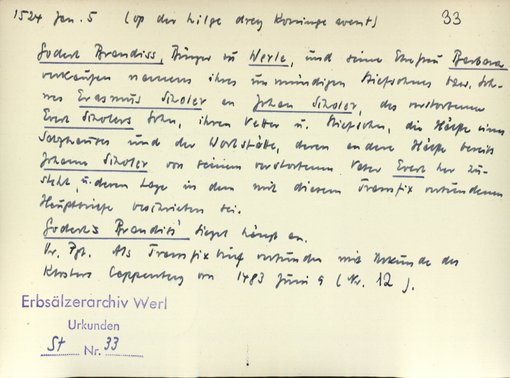 1524 Jan. 5 (op der hilge drey Konninge avent) 33
Godert Brandiss, Bürger zu Werle, und seine Ehefrau Barbara
verkaufen namens ihres unmündigen Stiefsohnes bzw. Soh-
nes Erasmus Scholer an Johan Scholer, des verstorbenen
Evert Scholers Sohn, ihren Vetter u. Stiefsohn, die Hälfte eines
Salzhauses und der Werkstätte, deren andere Hälfte bereits
Johann Scholer von seinem verstorbenen Vater Evert her zu-
steht, u. deren Lage in dem mit diesem Transfix verbundenen
Hauptbriefe beschrieben sei.
Godert Brandiss' Siegel hängt an.
Or. Pgt. Als Transfixbrief verbunden mit Urkunde des
Klosters Cappenberg von 1483 Juni 9 (Nr. 12).
Erbsälzerarchiv Werl
Urkunden
St Nr. 33